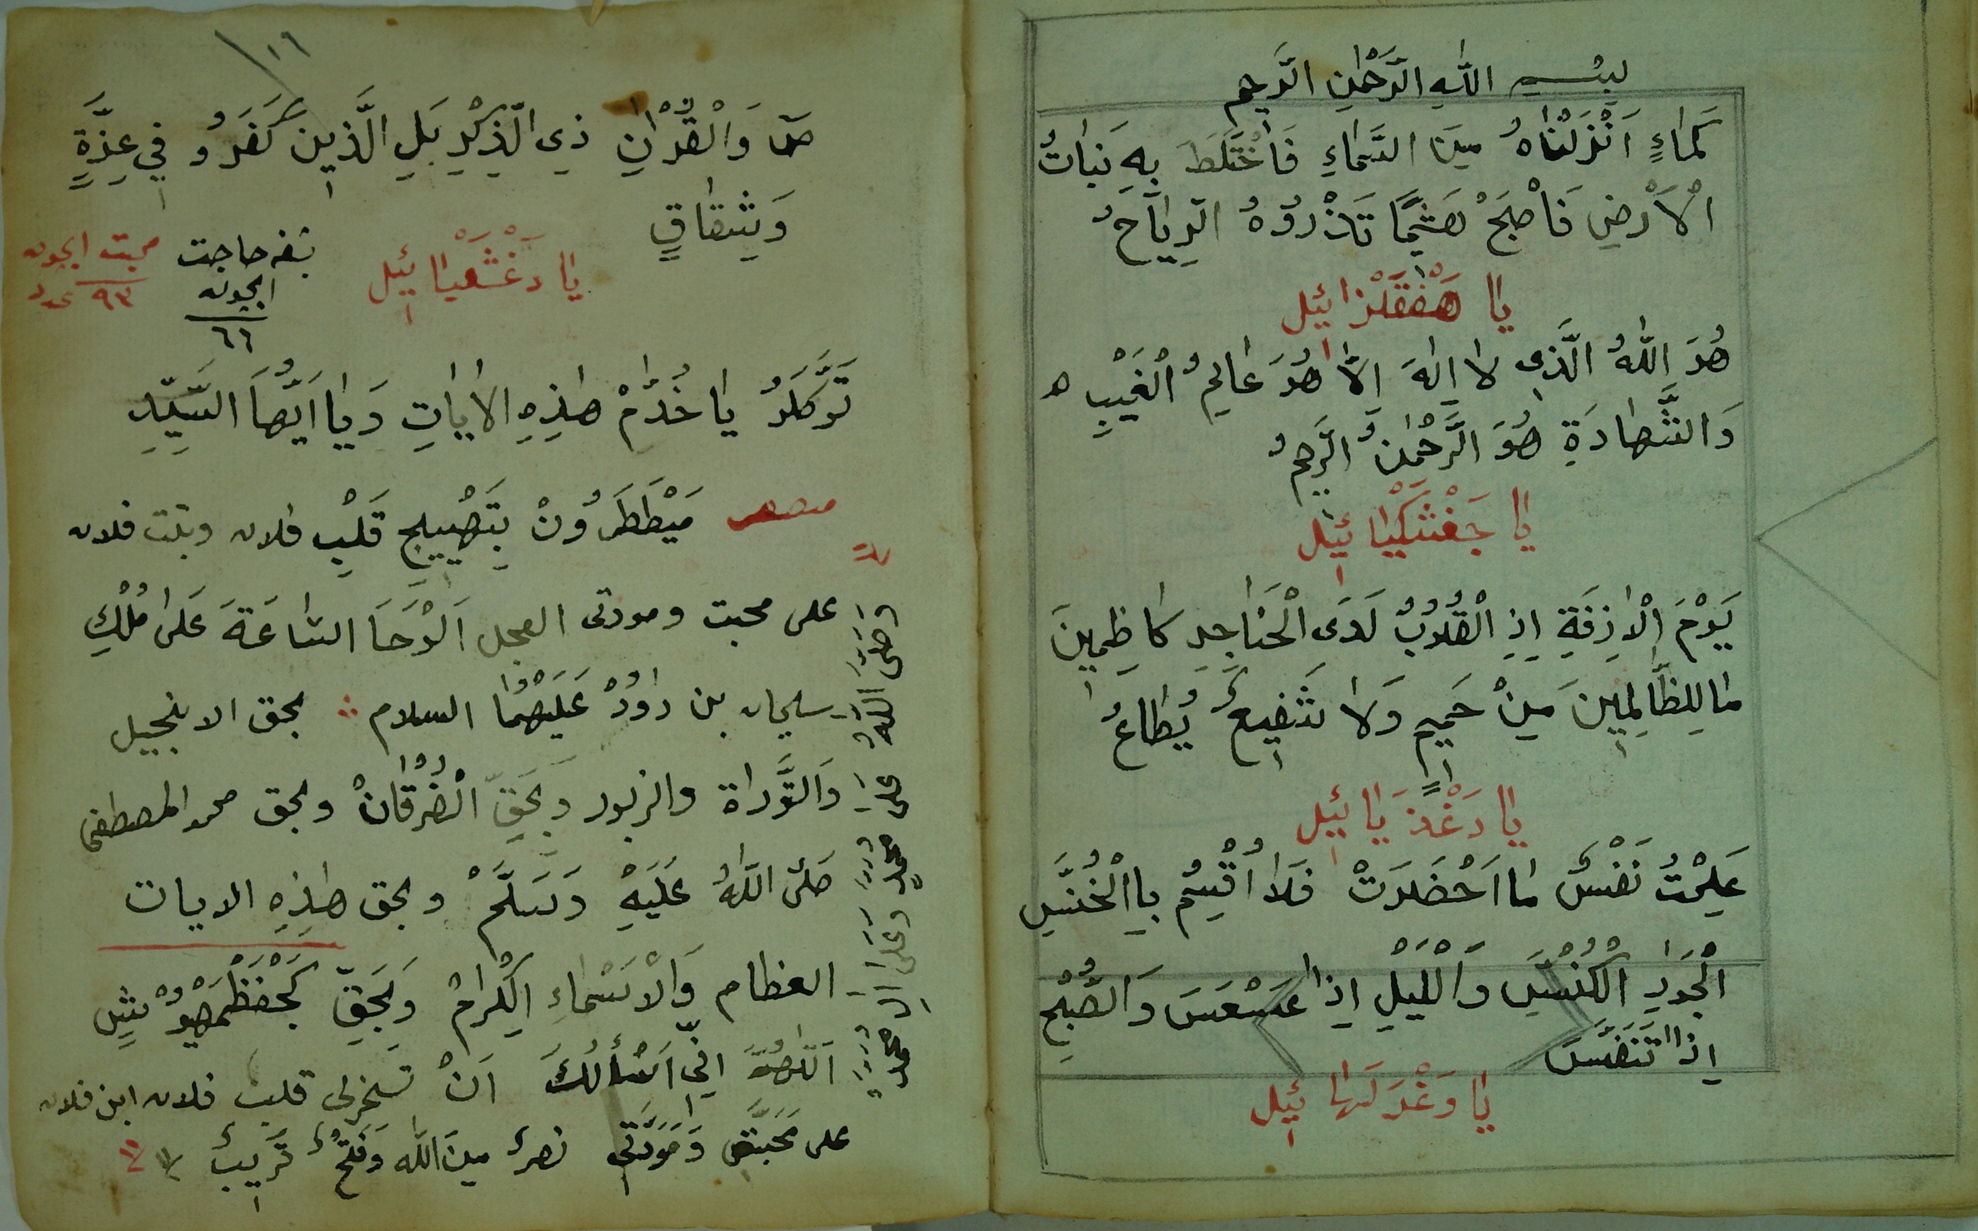 بسم الله الرَّحْمٰنِ الرَّحیم
كَمَاءٍ اَنْزَلْنَاهُ مِنَ السَّمَاءِ فَاخْتَلَطَ بِهِ نَبَاتُ
الْاَرْضِ فَاَصْبَحَ هَشِيمًا تَذْرُوهُ الرِّيَاحُ
يا هَفْقَلْزائيل
هُوَ اللّٰهُ الَّذِى لا اِلٰهَ اِلَّا هُوَ عَالِمُ الْغَيْبِ
وَالشَّهَادَةِ هُوَ الرَّحْمٰنُ الرَّحِيمُ
يا جَغْثَكْيائيل
يَوْمَ الْاٰزِفَةِ اِذِ الْقُلُوبُ لَدَى الْحَنَاجِرِ كَاظِمِينَ
مَا لِلظَّالِمِينَ مِنْ حَمِيمٍ وَلَا شَفِيعٌ يُطَاعُ
عَلِمَتْ نَفْسٌ مَا اَحْضَرَتْ فَلَا اُقْسِمُ بِالْخُنَّسِ
الْجَوَارِ الْكُنَّسِ وَالَّيْلِ اِذَا عَسْعَسَ وَالصُّبْحِ
اِذَا تَنَفَّسَ
١٦
صٓ وَالْقُرْاٰنِ ذِى الذِّكْرِ بَلِ الَّذِينَ كَفَرُو فِي عِزَّةٍ
وَشِقَاقٍ
يا دَغْشَعْيائيل
حاجت ايچون ٦٦
محبت ايچون ٩٣ عدد
تَوَكَّلُو يا خُدَّامْ هٰذِهِ الْاٰيَاتِ وَيَا اَيُّهَا السَّيِّدِ
مَيْطَطَرُونْ بِتَهْيِيجِ قَلْبِ فلان وبنت فلان
على محبت ومودتى العجل اَلْوَحَا السَّاعَةَ عَلَى مُلْكِ
سليمان بن دَاوُدْ عَلَيْهِمَا السلام بحق الانجيل
وَالتَّوْرَاة والزبور وبِحَقِّ الْفُرْقَانْ وبحق محمد المصطفى
صَلَّى اللّٰهُ عَلَيْهِ وَسَلَّمْ وبحق هٰذِهِ الايات
العظام وَالْاَسْمَاءِ الْكِرَامْ وَبِحَقِّ
اَللّٰهُمَّ اِنِّي اَسْأَلُكَ اَنْ تسخرلى قلب فلان ابن فلان
على مَحَبَّتى وَمَوَدَّتِي نصرٌ مِنَ اللّٰه وَفَتْحٌ قَرِيبٌ
وَصَلَّى اللّٰهُ على محمد وَعَلَى ال محمد